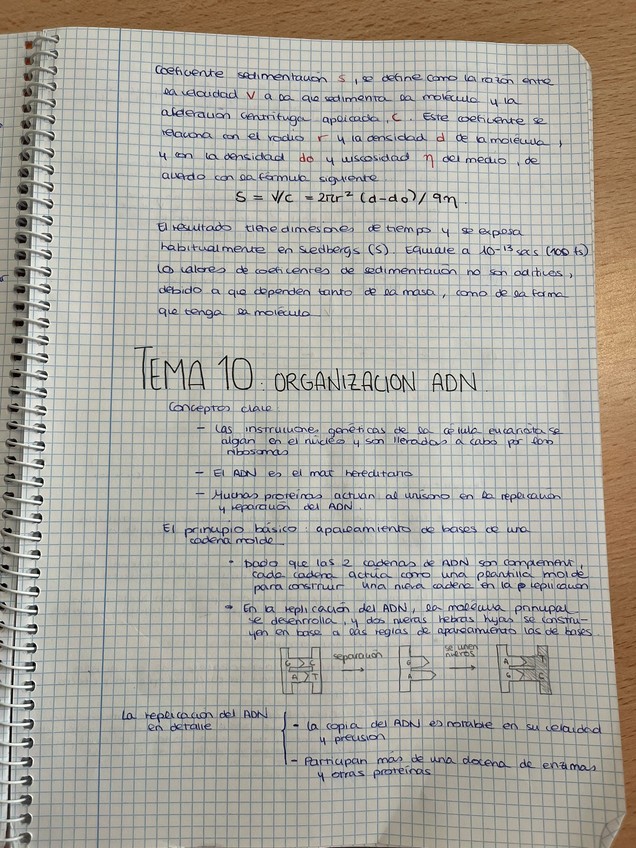 coeficiente sedimentación s, se define como la razón entre
la velocidad v a la que sedimenta la molécula y la
aceleración centrífuga aplicada, c. Este coeficiente se
relaciona con el radio r y la densidad d de la molécula,
y con la densidad do y viscosidad η del medio, de
acuerdo con la fórmula siguiente
S = V/C = 2πr² (d-do) / 9η.
El resultado tiene dimesiones de tiempo y se expresa
habitualmente en Svedbergs (S). Equivale a 10⁻¹³ secs (100 fs)
los valores de coeficentes de sedimentación no son aditivos,
debido a que dependen tanto de la masa, como de la forma
que tenga la molécula
TEMA 10: ORGANIZACION ADN.
Conceptos clave
- Las instruciones genéticas de la célula eucariota se
algan en el núcleo y son llevadas a cabo por los
ribosomas
- El ADN es el mat hereditario
- Muchas proteínas actúan al unísono en la replicación
y reparación del ADN.
El principio básico: apareamiento de bases de una
cadena molde
• Dado que las 2 cadenas de ADN son complement,
cada cadena actúa como una plantilla molde
para construir una nueva cadena en la replicación
• En la replicación del ADN, la molécula principal
se desenrolla, y dos nuevas hebras hijas se constru-
yen en base a las reglas de apareamiento las de bases
G C
A T
separación
G
A
se unen
nuevos
A T
G C
La replicación del ADN
en detalle
- La copia del ADN es notable en su velocidad
y precisión
- Participan más de una docena de enzimas
y otras proteínas